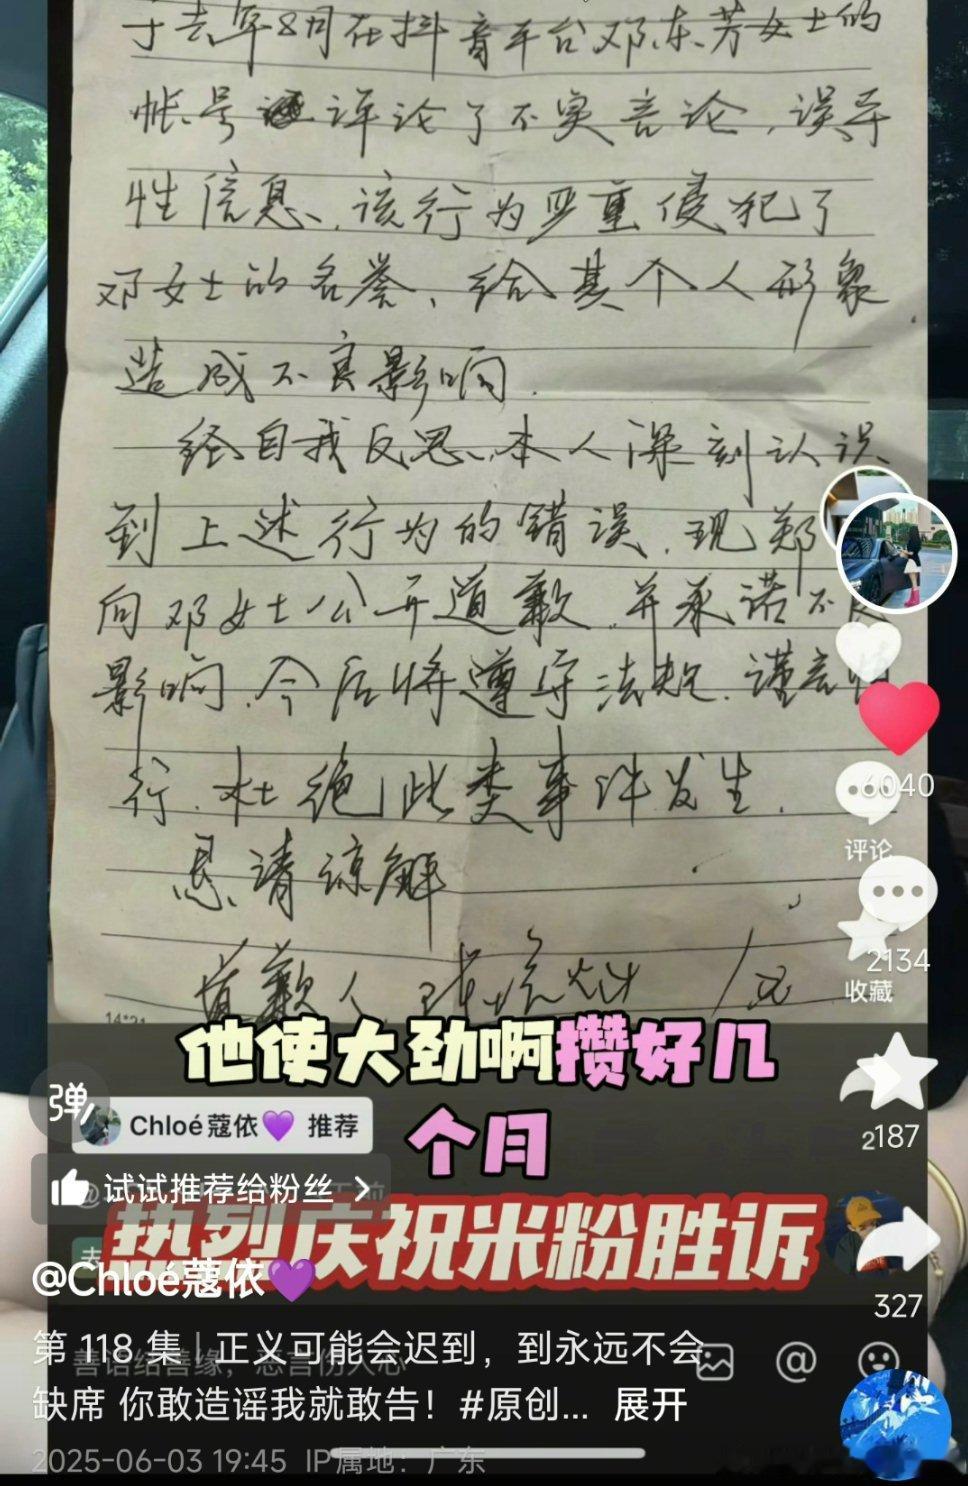 于去年8月在抖音平台邓东芳女士的
帐号评论了不实言论,误导
性信息、该行为严重侵犯了
邓女士的名誉、给其个人形象
造成不良影响.
经自我反思、本人深刻认识
到上述行为的错误.现郑
向邓女士公开道歉.并承诺不
影响.今后将遵守法规.谨言慎
行.杜绝此类事件发生.
恳请谅解
道歉人
14*21
他使大劲啊攒好几
个月
弹
Chloé蔻依💜 推荐
试试推荐给粉丝 >
热烈庆祝米粉胜诉
@Chloé蔻依💜
第 118 集 | 正义可能会迟到，到永远不会
善语结善缘，恶言伤人心
缺席 你敢造谣我就敢告！#原创... 展开
2025-06-03 19:45 IP属地：广东
6040
评论
2134
收藏
2187
327